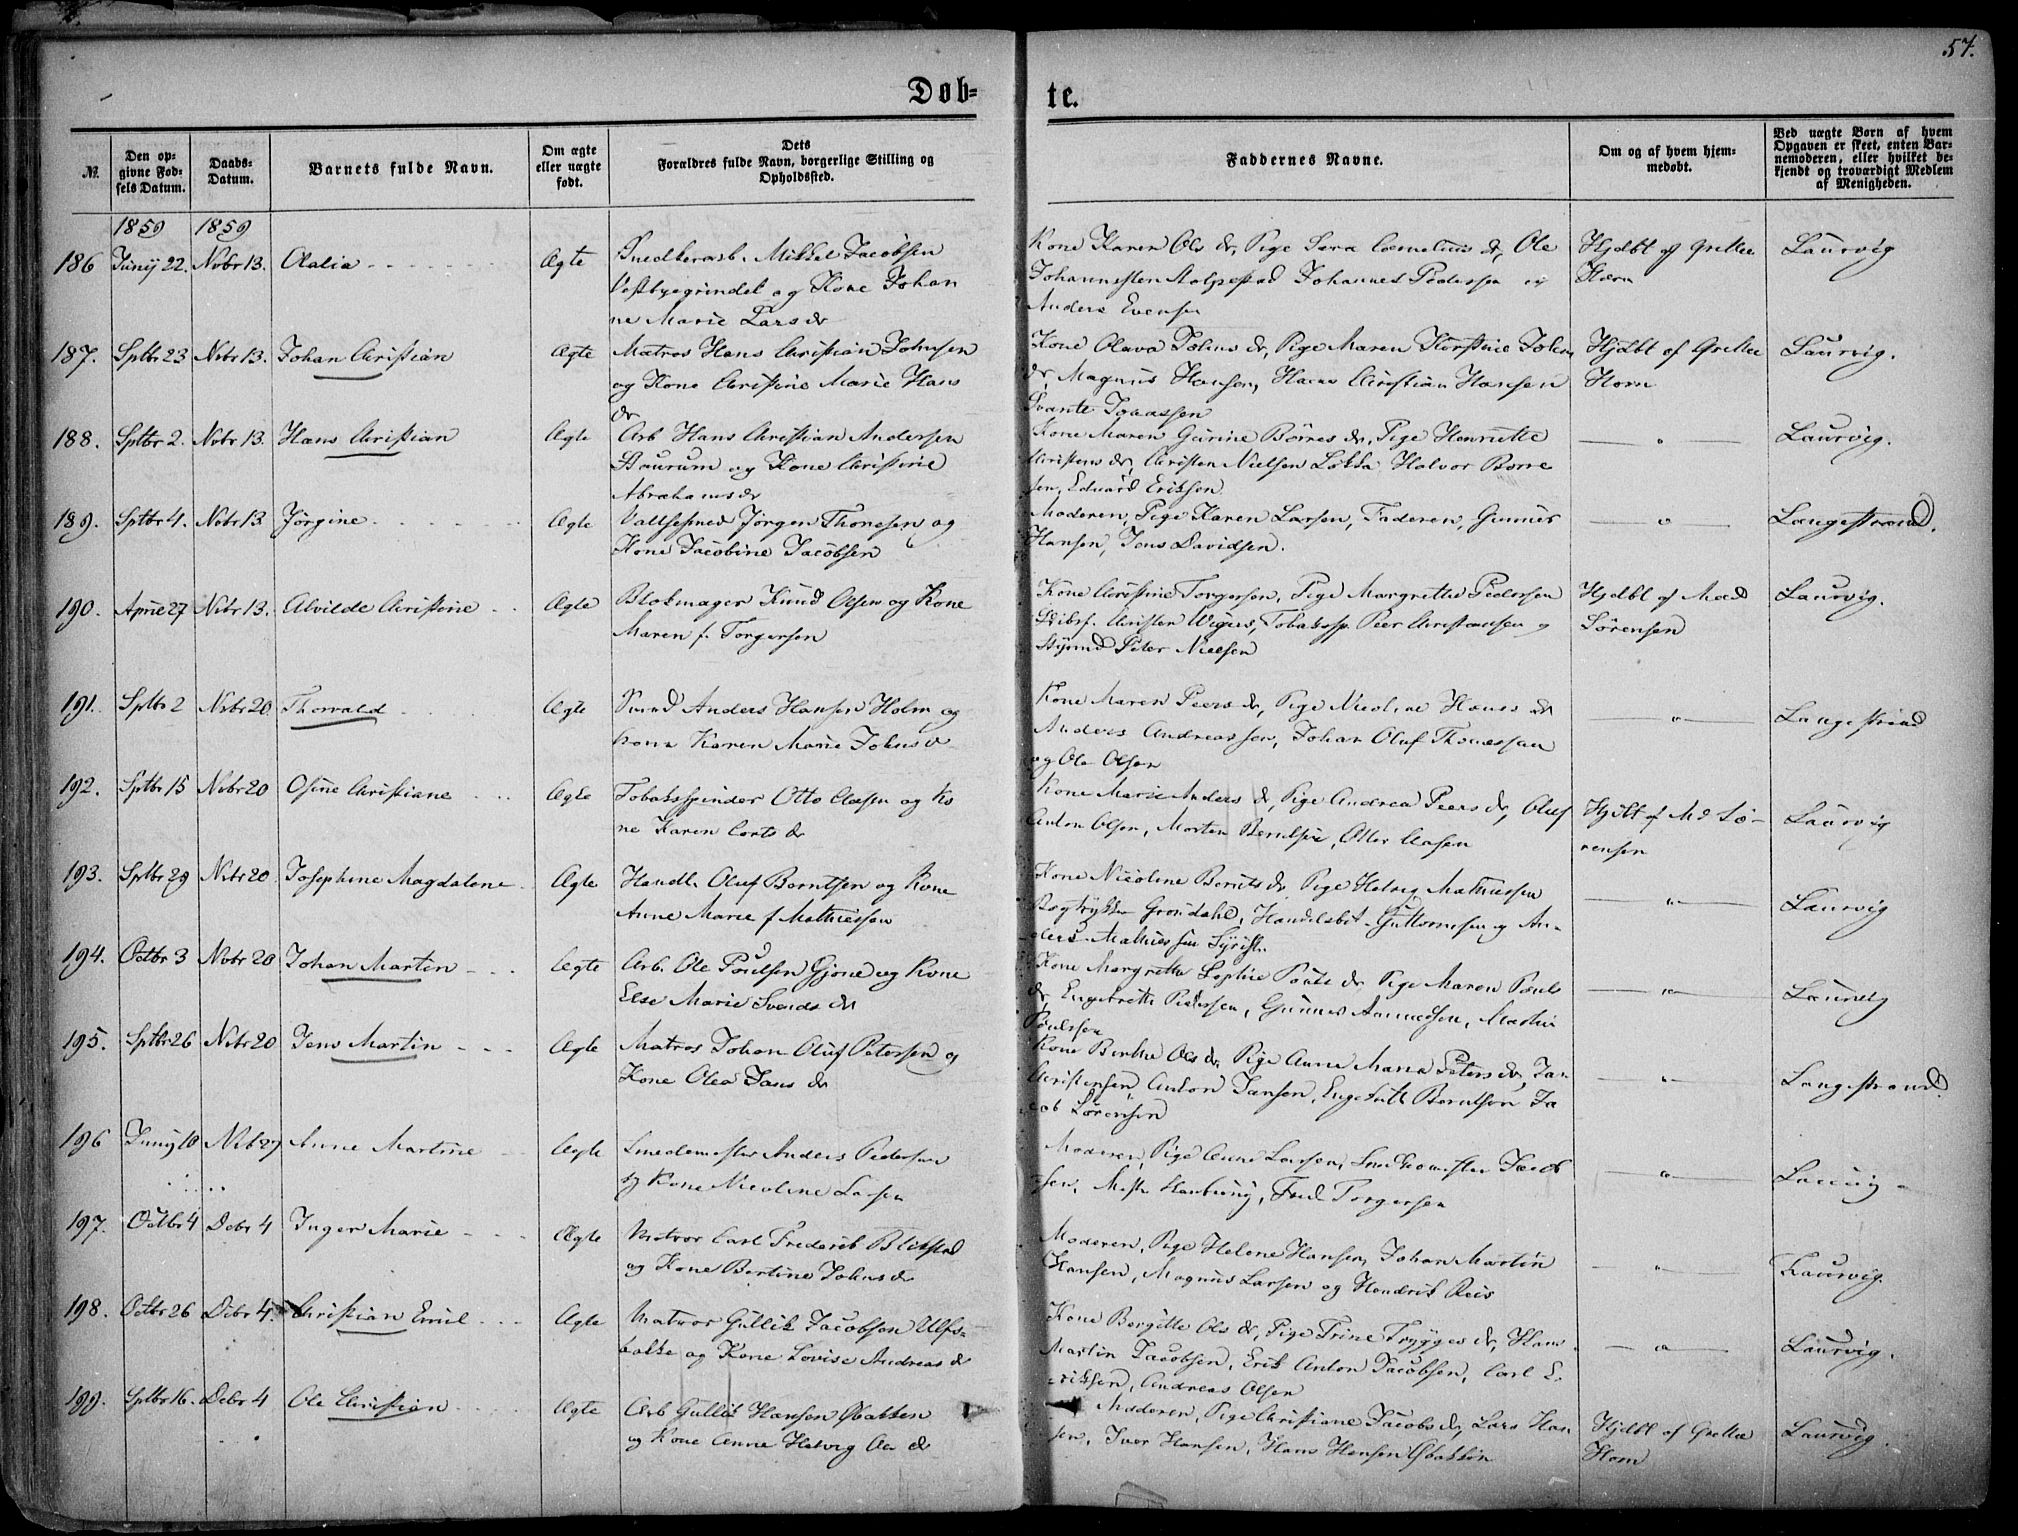 57.
Døb=
te.
№.
Den op-
givne Fød-
sels Datum.
Daabs-
Datum.
Barnets fulde Navn.
Om ægte
eller uægte
født.
Dets
Forældres fulde Navn, borgerlige Stilling og
Opholdssted.
Faddernes Navne.
Om og af hvem hjem-
medøbt.
Ved uægte Børn af hvem
Opgaven er skeet, enten Bar-
nemoderen, eller hvilket be-
kjendt og troværdigt Medlem
af Menigheden.
1859 1859
186 Junij 22. Novbr 13. Olalia Ægte Snedkerarb. Mikkel Jacobsen
Vestbyegrindet og Kone Johan
ne Marie Lars dr
Kone Karen Ols dr, Pige Sara Cornelius dr, Ole
Johannessen Johannes Pedersen og
Anders Evensen
Hjdbt af Grethe
Horn
Laurvig
187. Sptbr 23 Novbr 13. Johan Christian Ægte Matros Hans Christian Johnsen
og Kone Christine Marie Hans
dr
Kone Olava Johns dr, Pige Maren Kirstine Johns
dr, Magnus Hansen, Hans Christian Hansen
Svante Tobiassen
Hjdbt af Grethe
Horn
Laurvig.
188. Sptbr 2. Novbr 13. Hans Christian Ægte Arb Hans Christian Andersen
Staurum og Kone Christine
Abrahams dr
Kone Maren Gurine Børres dr, Pige Henriette
Christens dr, Christen Nielsen Løkka Halvor Borre
sen, Eduard Eriksen
— " —
Laurvig.
189. Sptbr 4. Novbr 13 Jørgine Ægte Valtsesmed Jørgen Thoresen og
Kone Jacobine Jacobsen
Moderen, Pige Karen Larsen, Faderen, Gunner
Hansen, Jens Davidsen.
— " —
Langestrand.
190. April 27 Novbr 13. Alvilde Christine Ægte Blokmager Knud Olsen og Kone
Maren f. Torgersen
Kone Christine Torgersen, Pige Margrethe Pedersen
Skibsf. Christen Wigers, Tobakssp. Peer Christensen og
Styrmd Peter Nielsen
Hjdbt af Mad
Sørensen
Laurvig.
191. Sptbr 2 Novbr 20. Thorvald Ægte Smed Anders Hansen Holm og
Kone Karen Marie Johns dr
Kone Maren Peers dr, Pige Nicoline Hans dr
Anders Andreassen, Johan Oluf Thomassen
og Ole Olsen
— " —
Langestrand
192. Sptbr 15 Novbr 20 Osine Christiane Ægte Tobaksspinder Otto Olsen og Ko
ne Karen Corts dr
Kone Marie Anders dr, Pige Andrea Peers dr, Oluf
Anton Olsen, Morten Berntsen, Otter Aasen
Hjdbt af Md Sø-
rensen
Laurvig
193. Sptbr 29 Novbr 20. Josephine Magdalene Ægte Handl. Oluf Berntsen og Kone
Anne Marie f Mathiessen
Kone Nicoline Bernts dr Pige Helvig Mathiesen
Bogtrykker Grøndahl, Handelsbet. Guttormsen og An-
ders Mathiessen
— " —
Laurvig
194. Octbr 3 Novbr 20 Johan Martin Ægte Arb. Ole Poulsen Gjone og Kone
Else Marie Svends dr
Kone Margrethe Sophie Pouls dr Pige Maren Pouls
dr, Engebrett Pedersen, Gunner Asmussen, Mathis
Poulssen
— " —
Laurvig
195. Sptbr 26 Novbr 20 Jens Martin Ægte Matros Johan Oluf Petersen og
Kone Olea Jans dr
Kone Berthe Ols dr, Pige Anne Maria Peters dr, Jan
Christensen Anton Jansen, Engebrett Berntsen Ja
cob Sørensen
— " —
Langestrand.
196 Junij 10 Novb 27 Anne Martine Ægte Smedemester Anders Pedersen
og Kone Nicoline Larsen
Moderen, Pige Anne Larsen, Smedemester Jacob
sen, Fred. Torgersen
— " —
Laurvig
197. Octbr 4 Decbr 4 Inger Marie Ægte Matros Carl Frederik Blikstad
og Kone Bertine Johns dr
Moderen, Pige Helene Hansen, Johan Martin
Hansen, Magnus Larsen og Hendrik Reis
— " —
Laurvig.
198. Octbr 26 Decbr 4. Christian Emil Ægte Matros Gullik Jacobsen Ulfs-
bakke og Kone Lovise Andreas dr
Kone Bergitte Ols dr, Pige Trine Trygges dr, Hans
Martin Jacobsen, Erik Anton Jacobsen, Carl E-
riksen, Andreas Olsen
— " —
Laurvig.
199. Sptbr 16. Decbr 4 Ole Christian Ægte Arb Gullik Hansen Øbakken
og Kone Anne Helvig Ols dr
Moderen, Pige Christiane Jacobs dr, Lars Han
sen, Iver Hansen, Hans Hansen Øbakken
Hjdbt af Grethe
Horn
Laurvig.